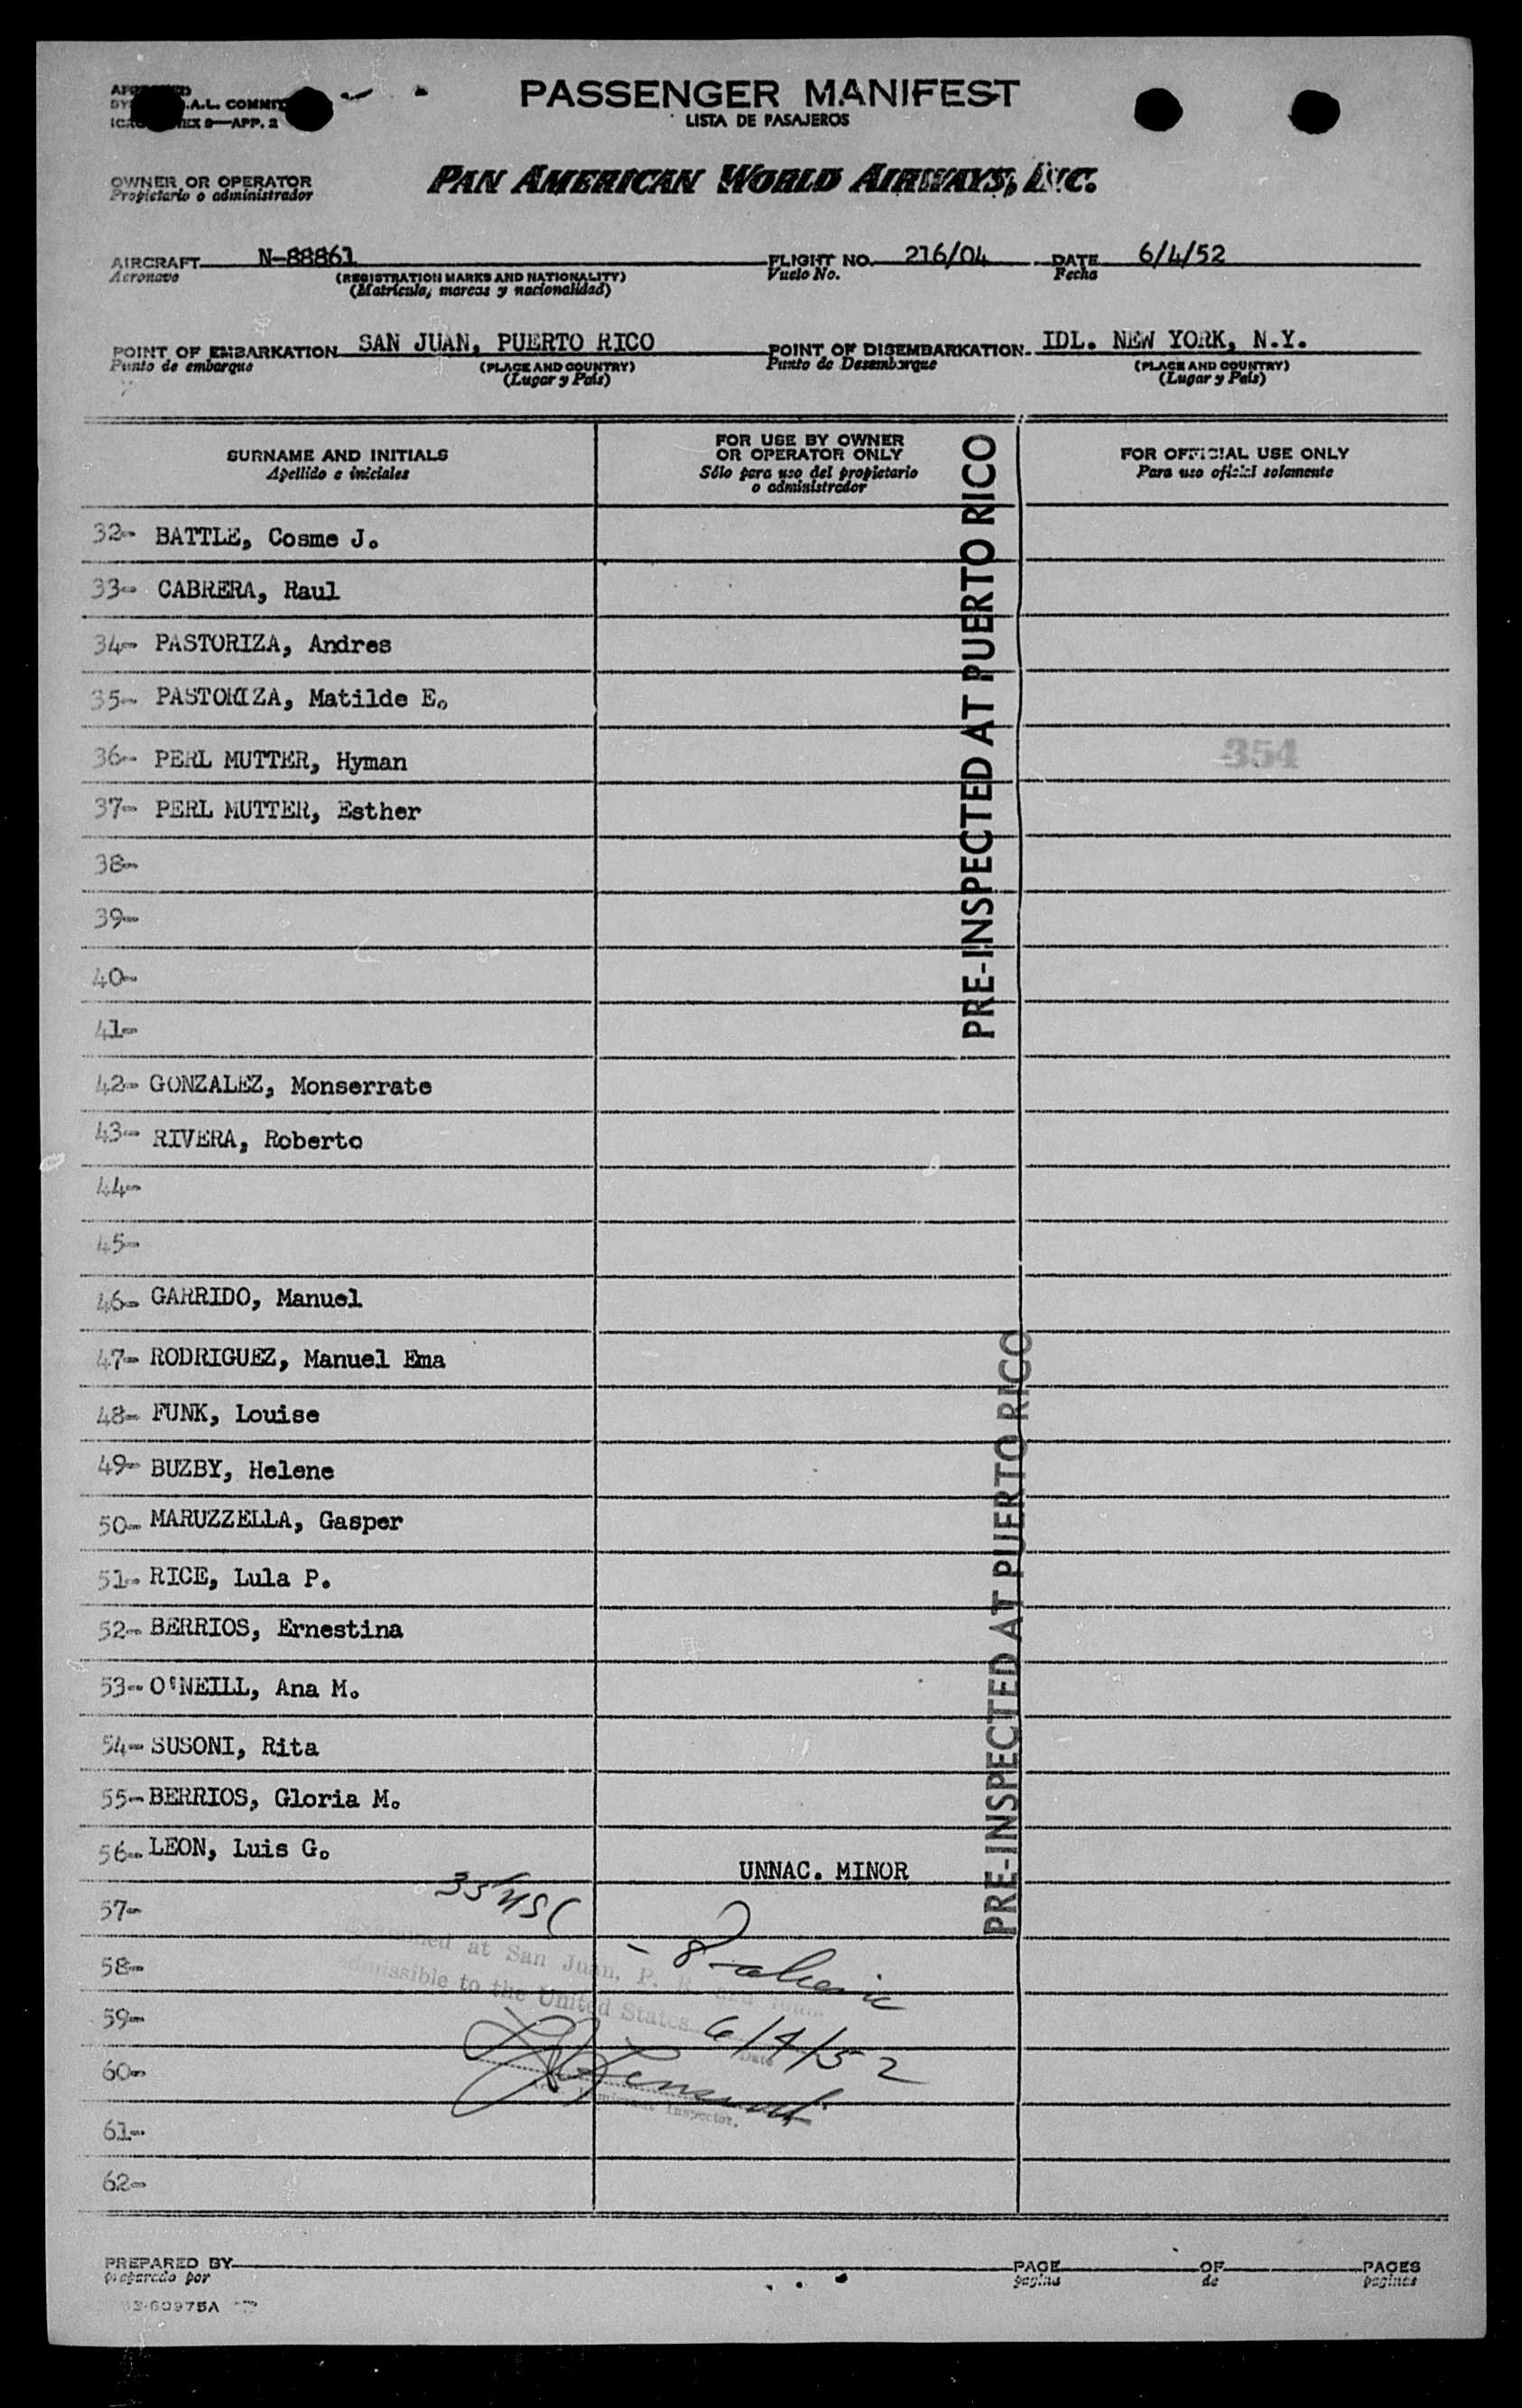 PASSENGER MANIFEST
LISTA DE PASAJEROS
.A.L. COMMIT
9—APP. 2
OWNER OR OPERATOR
Propietario o administrador
PAN AMERICAN WORLD AIRWAYS, INC.
AIRCRAFT N-88861 FLIGHT NO. 216/04 DATE 6/4/52
Aeronave (REGISTRATION MARKS AND NATIONALITY) Vuelo No. Fecha
(Matrícula, marcas y nacionalidad)
POINT OF EMBARKATION SAN JUAN, PUERTO RICO POINT OF DISEMBARKATION IDL. NEW YORK, N.Y.
Punto de embarque (PLACE AND COUNTRY) Punto de Desembarque (PLACE AND COUNTRY)
(Lugar y País) (Lugar y País)
SURNAME AND INITIALS
Apellido e iniciales
FOR USE BY OWNER
OR OPERATOR ONLY
Sólo para uso del propietario
o administrador
FOR OFFICIAL USE ONLY
Para uso oficial solamente
PRE-INSPECTED AT PUERTO RICO
32- BATTLE, Cosme J.
33- CABRERA, Raul
34- PASTORIZA, Andres
35- PASTORIZA, Matilde E.
36- PERL MUTTER, Hyman 354
37- PERL MUTTER, Esther
38-
39-
40-
41-
42- GONZALEZ, Monserrate
43- RIVERA, Roberto
44-
45-
46- GARRIDO, Manuel
47- RODRIGUEZ, Manuel Ema
48- FUNK, Louise
49- BUZBY, Helene
50- MARUZZELLA, Gasper
51- RICE, Lula P.
52- BERRIOS, Ernestina
53- O'NEILL, Ana M.
54- SUSONI, Rita
55- BERRIOS, Gloria M.
56- LEON, Luis G. UNNAC. MINOR
PRE-INSPECTED AT PUERTO RICO
57-
58-
59-
60-
61-
62-
Examined at San Juan, P. R. and found
admissible to the United States 6/4/52
Date
Inspector.
PREPARED BY PAGE OF PAGES
preparado por pagina de paginas